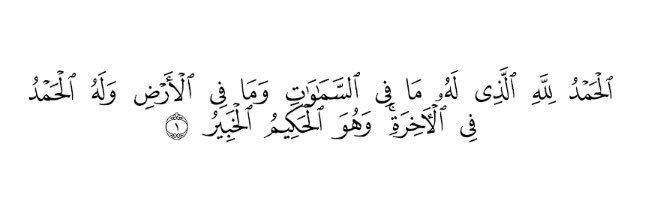 ٱلْحَمْدُ لِلَّهِ ٱلَّذِى لَهُۥ مَا فِى ٱلسَّمَـٰوَٰتِ وَمَا فِى ٱلْأَرْضِ وَلَهُ ٱلْحَمْدُ
فِى ٱلْـَٔاخِرَةِ ۚ وَهُوَ ٱلْحَكِيمُ ٱلْخَبِيرُ ١